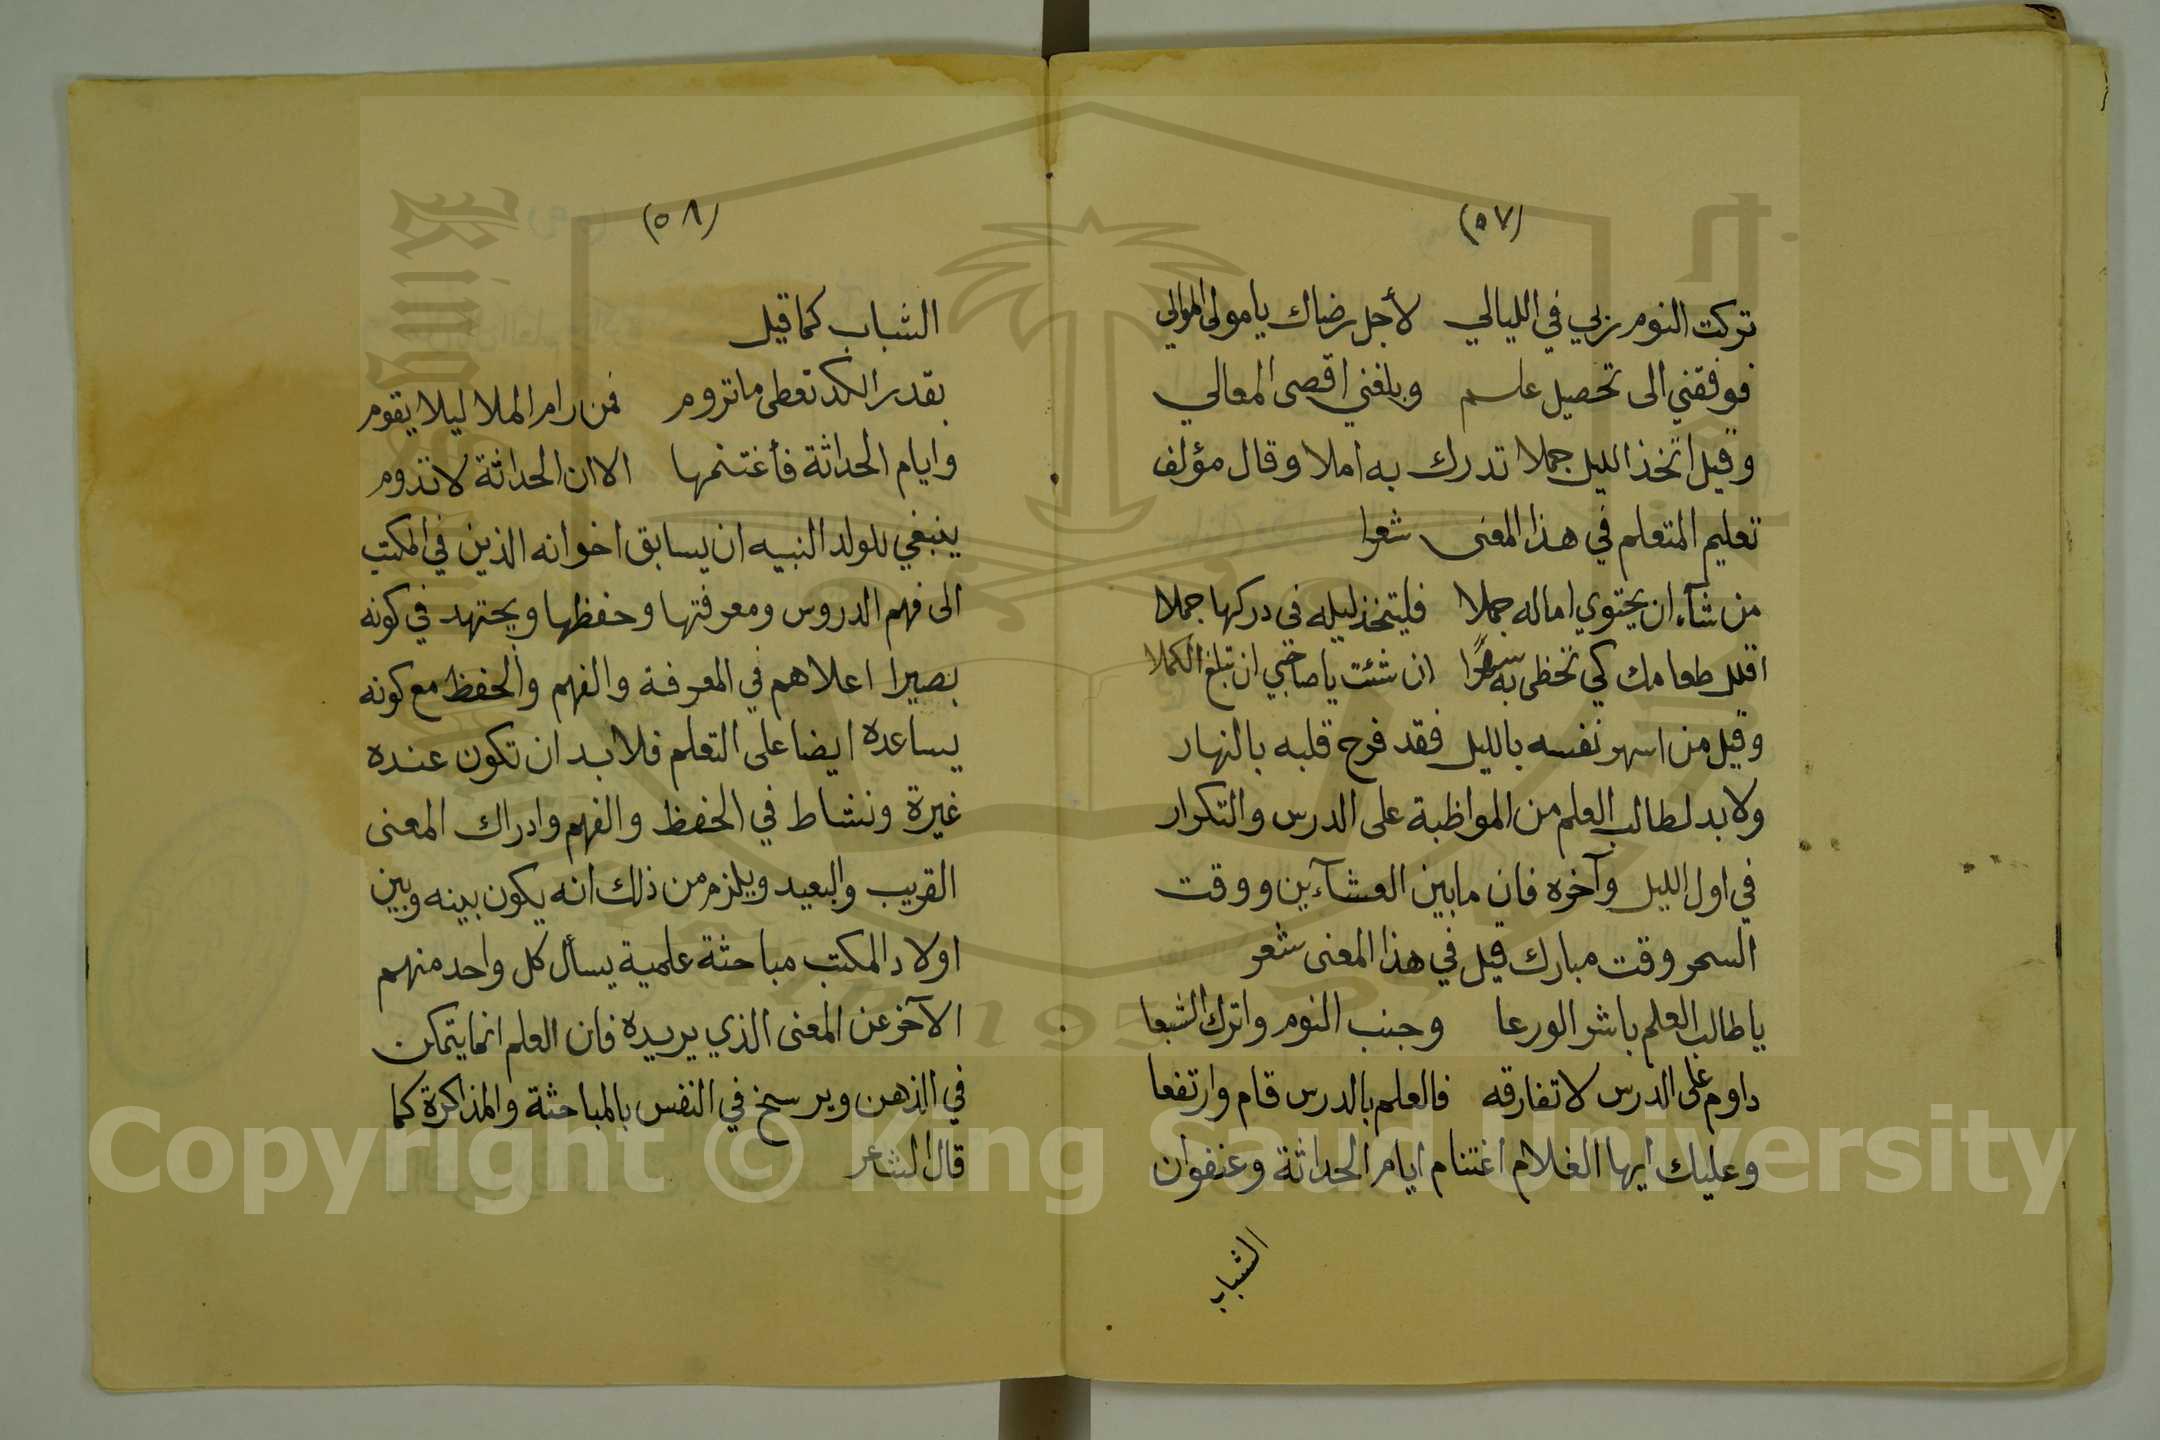 (٥٧)
تركت النوم ربي في الليالي لأجل رضاك يا مولى الموالي
فوفقني الى تحصيل علم وبلغني اقصى المعالي
وقيل اتخذ الليل جملا تدرك به املا وقال مؤلف
تعليم المتعلم في هذا المعنى شعرا
من شآء ان يحتوي اماله جملا فليتخذ ليله في دركها جملا
اقلل طعامك كي تحظى به سهرًا ان شئت يا صاحبي ان تبلغ الكملا
وقيل من اسهر نفسه بالليل فقد فرح قلبه بالنهار
ولا بد لطالب العلم من المواظبة على الدرس والتكرار
في اول الليل وآخره فان ما بين العشآءين ووقت
السحر وقت مبارك قيل في هذا المعنى شعر
يا طالب العلم باشر الورعا وجنب النوم واترك الشبعا
داوم على الدرس لا تفارقه فالعلم بالدرس قام وارتفعا
وعليك ايها الغلام اغتنام ايام الحداثة وعنفوان
الشباب
(٥٨)
الشباب كما قيل
بقدر الكد تعطى ما تروم فمن رام الملا ليلا يقوم
وايام الحداثة فأغتنمها الا ان الحداثة لا تدوم
ينبغي للولد النبيه ان يسابق اخوانه الذين في المكتب
الى فهم الدروس ومعرفتها وحفظها ويجتهد في كونه
بصيرا اعلاهم في المعرفة والفهم والحفظ مع كونه
يساعده ايضا على التعلم فلا بد ان تكون عنده
غيرة ونشاط في الحفظ والفهم وادراك المعنى
القريب والبعيد ويلزم من ذلك انه يكون بينه وبين
اولاد المكتب مباحثة علمية يسأل كل واحد منهم
الآخر عن المعنى الذي يريده فان العلم انما يتمكن
في الذهن ويرسخ في النفس بالمباحثة والمذاكرة كما
قال الشاعر
Copyright © King Saud University